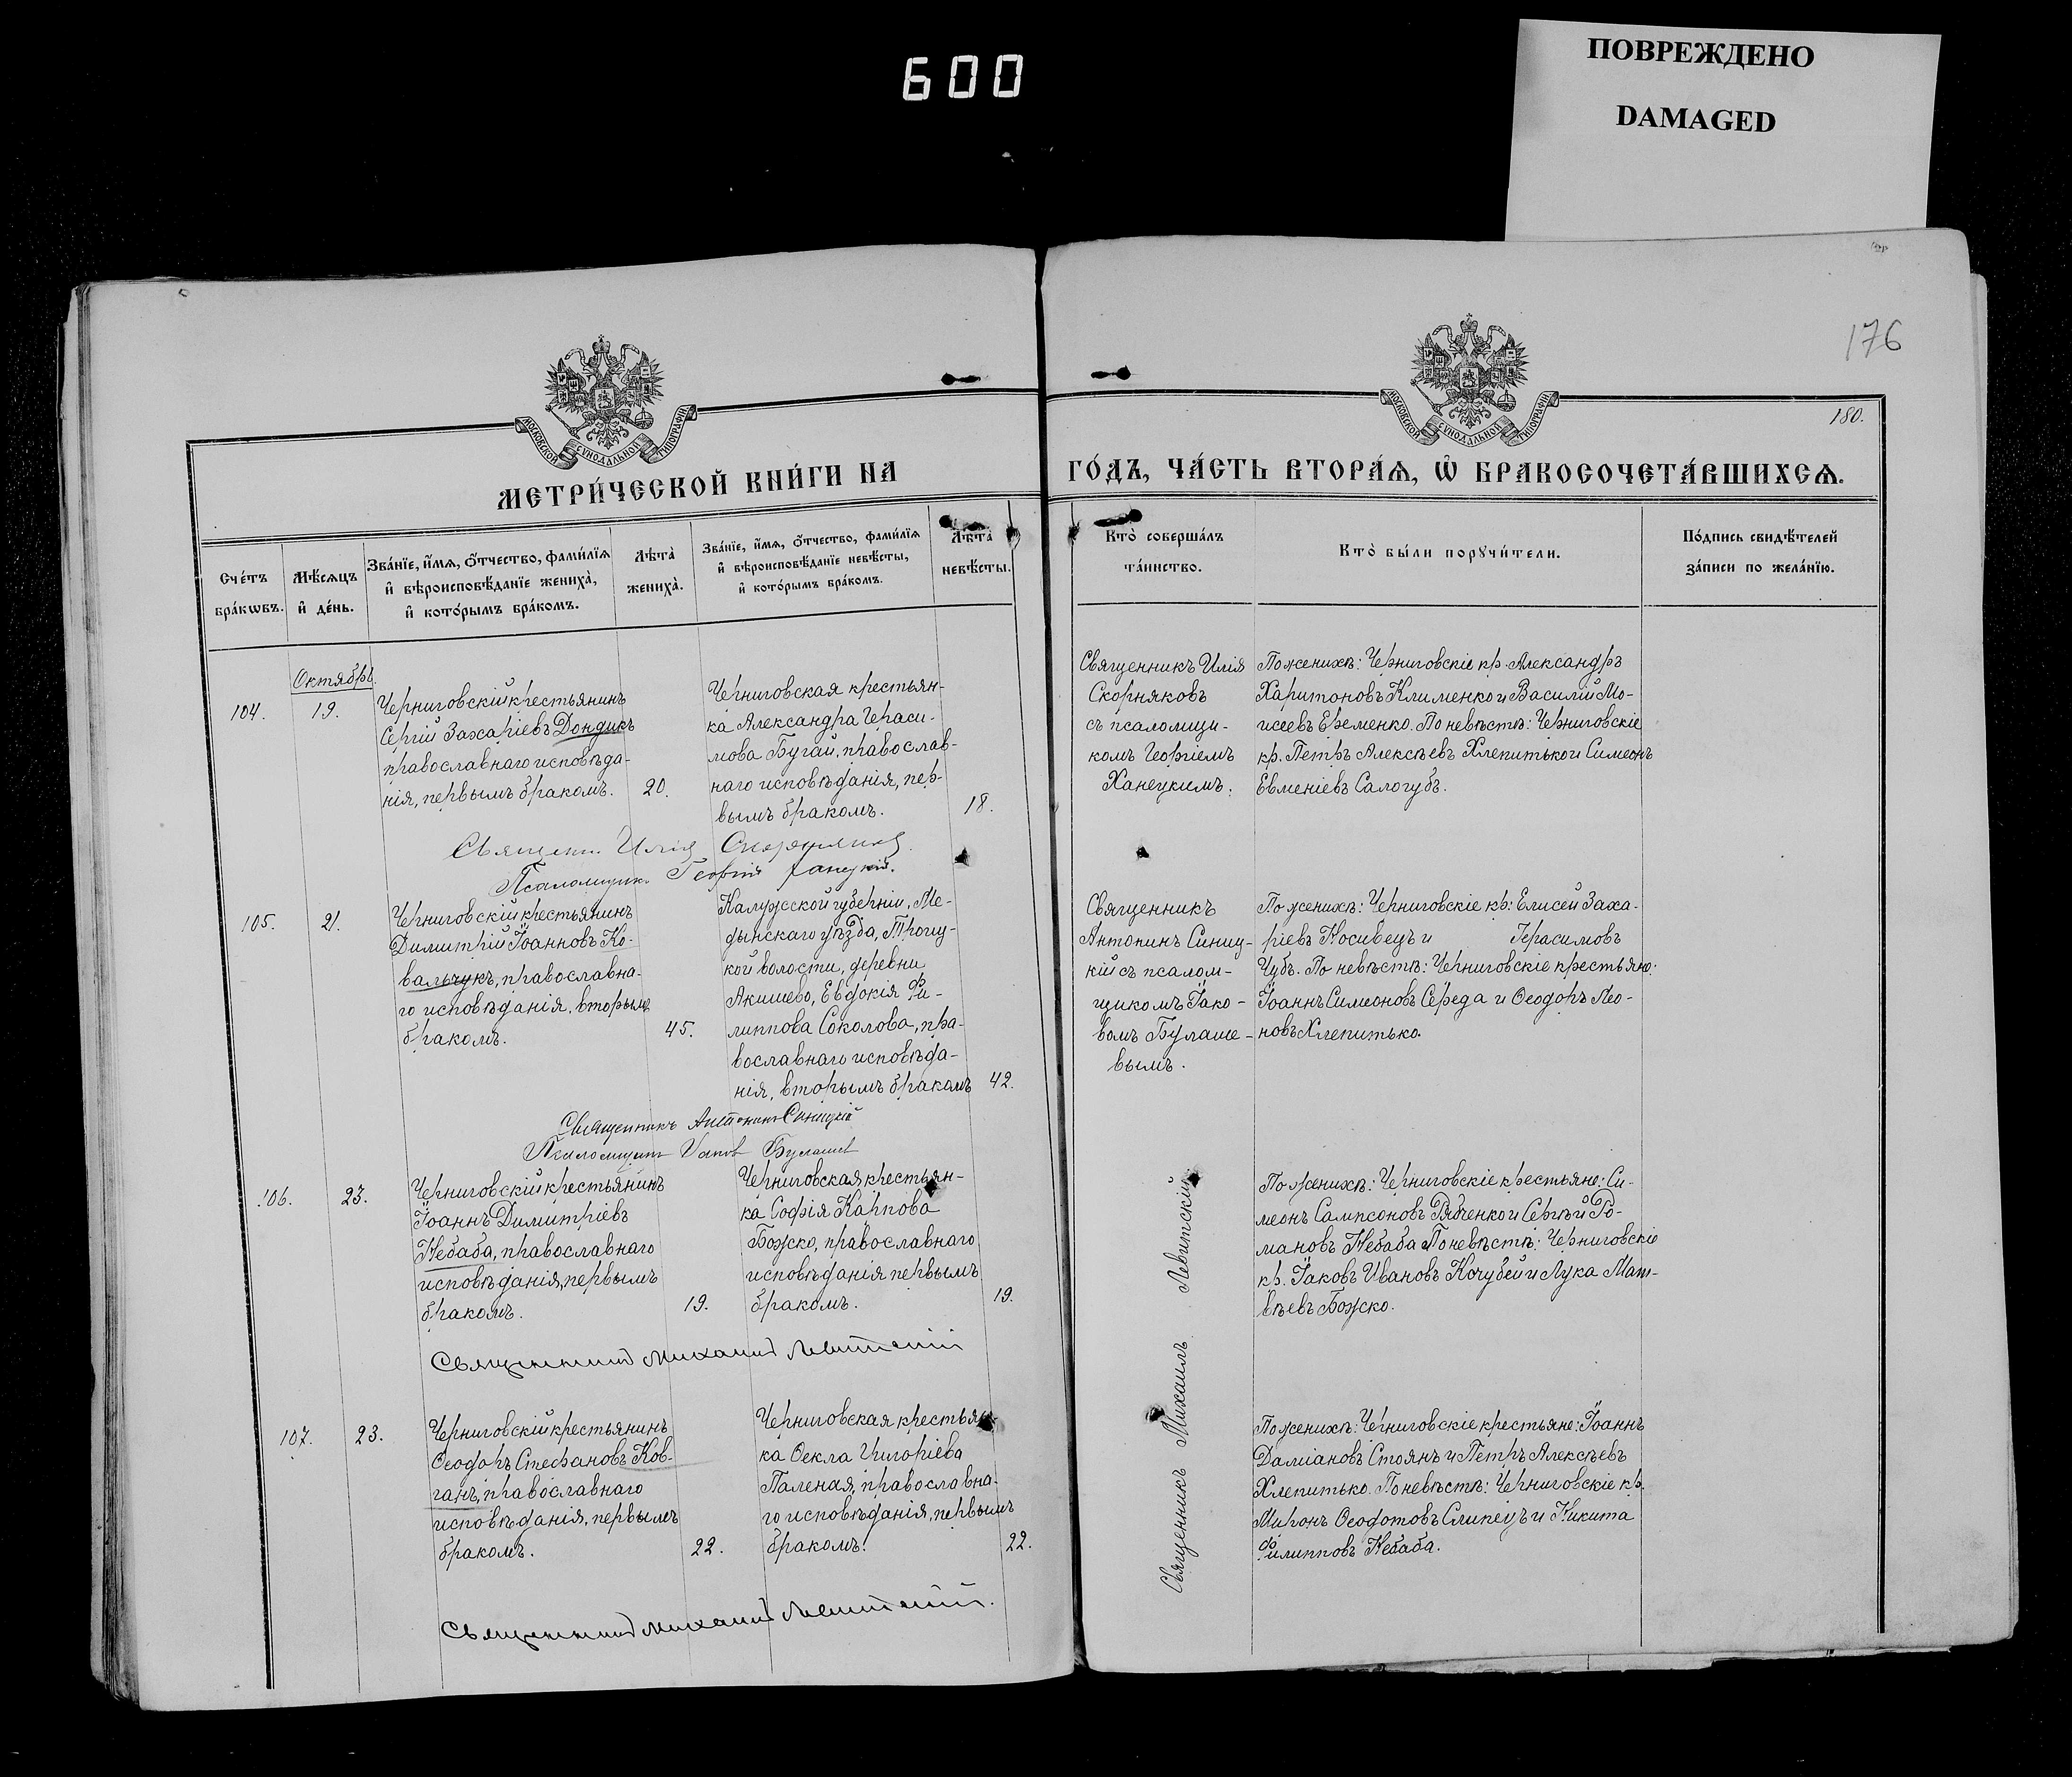 600
ПОВРЕЖДЕНО
DAMAGED
176
180.
МОСКОВСКОЙ СѴНОДАЛЬНОЙ ТИПОГРАФІИ
МОСКОВСКОЙ СѴНОДАЛЬНОЙ ТИПОГРАФІИ
МЕТРИ́ЧЕСКОЙ КНИ́ГИ НА
ГО́ДЪ, ЧА́СТЬ ВТОРА́Я, Ѡ҆ БРАКОСОЧЕТА́ВШИХСЯ.
Сче́тъ
бра́кѡвъ.
Мѣ́сяцъ
и҆ де́нь.
Зва́нїе, и҆́мя, ѻ҆́тчество, фами́лїя
и҆ вѣроисповѣ́данїе жениха̀,
и҆ кото́рымъ бра́комъ.
Лѣта̀
жениха̀.
Зва́нїе, и҆́мя, ѻ҆́тчество, фами́лїя
и҆ вѣроисповѣ́данїе невѣ́сты,
и҆ кото́рымъ бра́комъ.
Лѣта̀
невѣ́сты.
Кто̀ соверша́лъ
та́инство.
Кто̀ бы́ли порꙋчи́тели.
По́дпись свидѣ́телей
за́писи по жела́нїю.
Октябрь.
104.
19.
Черниговскій крестьянинъ
Сергій Захаріевъ Дондикъ
православнаго исповѣда-
нія, первымъ бракомъ.
20.
Черниговская крестьян-
ка Александра Гераси-
мова Бугай, православ-
наго исповѣданія, пер-
вымъ бракомъ.
18.
Священникъ Илія
Скорняковъ
съ псаломщи-
комъ Георгіемъ
Ханецкимъ.
По женихѣ: Черниговскіе кр. Александръ
Харитоновъ Клименко и Василій Мо-
исеевъ Еременко. По невѣстѣ: Черниговскіе
кр. Петръ Алексѣевъ Хлепитько и Симеонъ
Евменіевъ Салогубъ.
Священн. Илія Скорняковъ
Псаломщик. Георгій Ханецкій.
105.
21.
Черниговскій крестьянинъ
Димитрій Іоанновъ Ко-
вальчукъ, православна-
го исповѣданія, вторымъ
бракомъ.
45.
Калужской губерніи, Ме-
дынскаго уѣзда, Троиц-
кой волости, деревни
Акишево, Евдокія Фи-
липпова Соколова, пра-
вославнаго исповѣда-
нія, вторымъ бракомъ
42.
Священникъ
Антонинъ Синиц-
кій съ псалом-
щикомъ Іако-
вомъ Булаше-
вымъ.
По женихѣ: Черниговскіе кр: Елисей Заха-
ріевъ Носивецъ и Герасимовъ
Чубъ. По невѣстѣ: Черниговскіе крестьяне:
Іоаннъ Симеоновъ Середа и Ѳеодоръ Лео-
новъ Хлепитько.
Священникъ Антонинъ Синицкій
Псаломщикъ Іаковъ Булашев
106.
23.
Черниговскій крестьянинъ
Іоаннъ Димитріевъ
Небаба, православнаго
исповѣданія, первымъ
бракомъ.
19.
Черниговская крестьян-
ка Софія Карпова
Божко, православнаго
исповѣданія первымъ
бракомъ.
19.
Священникъ Михаилъ Левитскій
По женихѣ: Черниговскіе крестьяне: Си-
меонъ Сампсоновъ Рябченко и Сергѣй Ро-
мановъ Небаба По невѣстѣ: Черниговскіе
кр. Іаковъ Ивановъ Кочубей и Лука Мат-
вѣевъ Божко.
Священникъ Михаилъ Левитскій
107.
23.
Черниговскій крестьянинъ
Ѳеодоръ Стефановъ Ков-
ганъ, православнаго
исповѣданія, первымъ
бракомъ.
22.
Черниговская крестьян-
ка Ѳекла Григоріева
Паленая, православна-
го исповѣданія, первымъ
бракомъ.
22.
По женихѣ: Черниговскіе крестьяне: Іоаннъ
Даміановъ Стоянъ и Петръ Алексѣевъ
Хлепитько. По невѣстѣ: Черниговскіе кр.
Миронъ Ѳеодотовъ Слипецъ и Никита
Филипповъ Небаба.
Священникъ Михаилъ Левитскій.